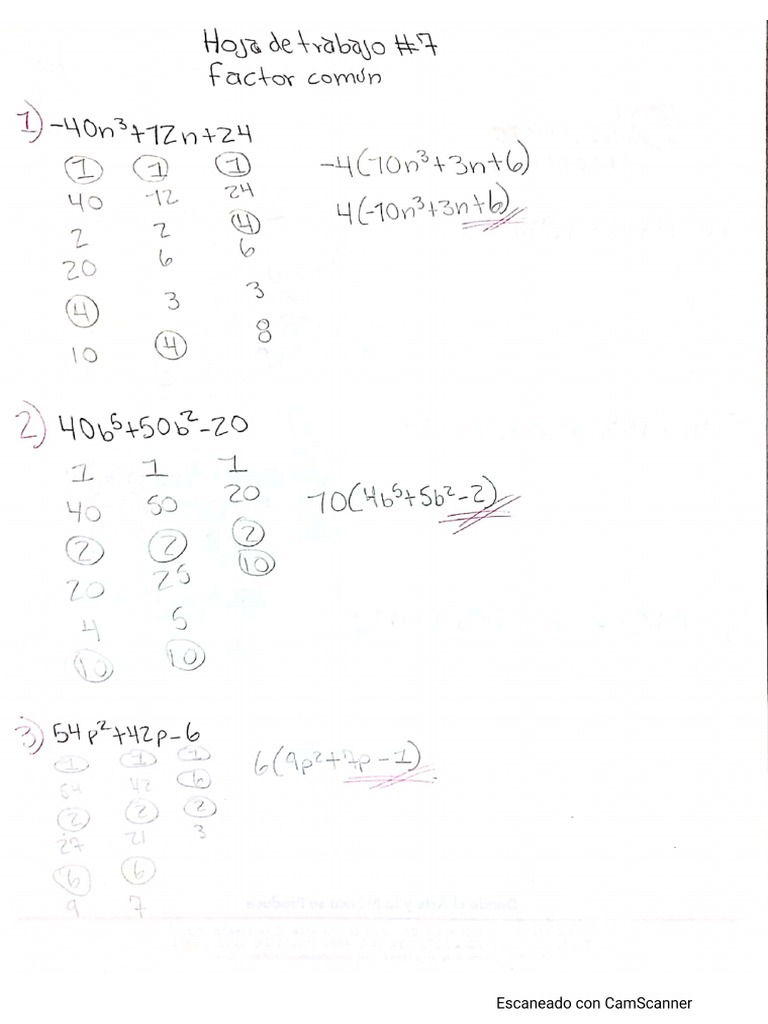 Hoja de trabajo #7
factor común
1) -40n³+12n+24
1 1 1
-4(10n³+3n+6)
40 12 24
4(-10n³+3n+6)
2 2 4
20 6 6
4 3 3
10 4 8
2) 40b⁵+50b²-20
1 1 1
40 50 20
10(4b⁵+5b²-2)
2 2 2
20 25 10
4 5
10 10
3) 54p²+42p-6
1 1 1
6(9p²+7p-1)
54 42 6
2 2 2
27 21 3
6 6
9 7
Escaneado con CamScanner